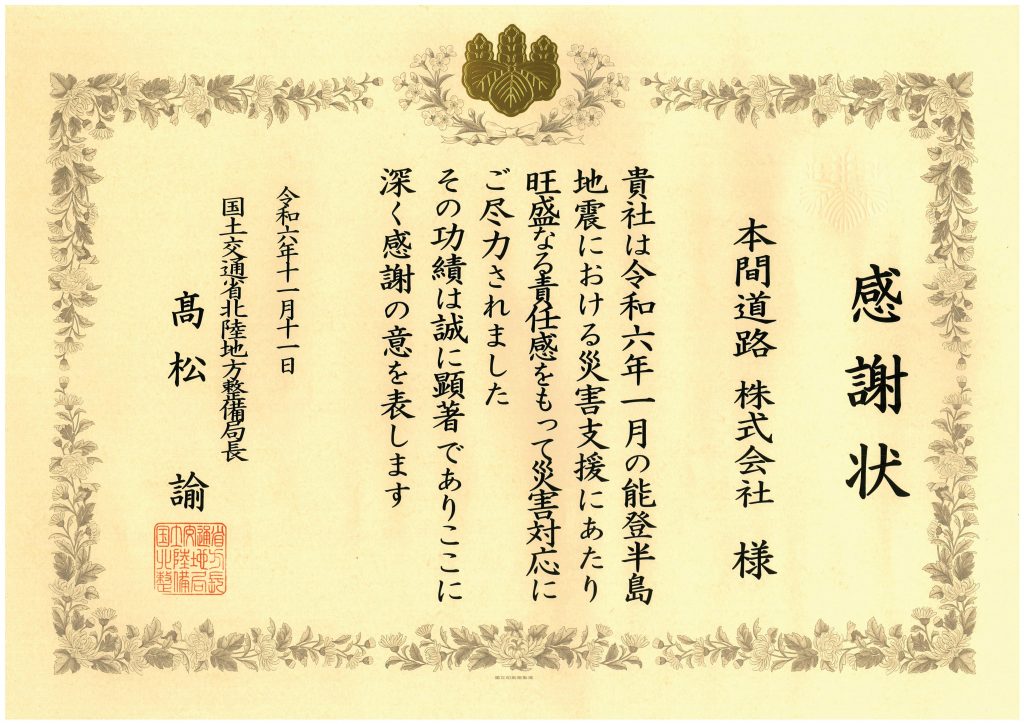 感謝状
本間道路 株式会社 様
貴社は令和六年一月の能登半島
地震における災害支援にあたり
旺盛なる責任感をもって災害対応に
ご尽力されました
その功績は誠に顕著でありここに
深く感謝の意を表します
令和六年十一月十一日
国土交通省北陸地方整備局長
髙松 諭